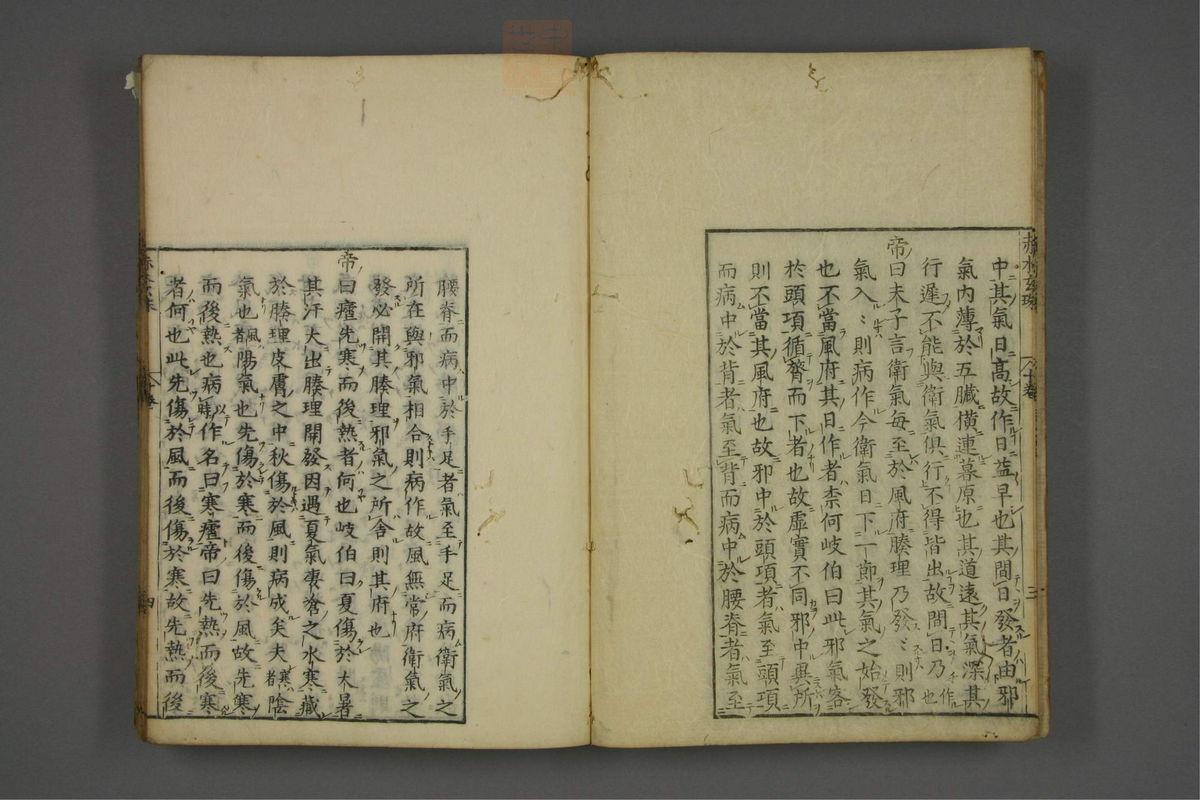 中其氣日高故作日益早也其間日發者由邪
氣内薄於五臟横連募原也其道遠其氣深其
行遲不能與衛氣俱行不得皆出故間日乃作也
帝曰夫子言衛氣每至於風府腠理乃發〻則邪
氣入〻則病作今衛氣日下一節其氣之始發
也不當風府其日作者柰何岐伯曰此邪氣客
於頭項循膂而下者也故虚實不同邪中異所
則不當其風府也故邪中於頭項者氣至頭項
而病中於背者氣至背而病中於腰脊者氣至
腰脊而病中於手足者氣至手足而病衛氣之
所在與邪氣相合則病作故風無常府衛氣之
發必開其腠理邪氣之所舍則其府也
帝曰瘧先寒而後熱者何也岐伯曰夏傷於大暑
其汗大出腠理開發因遇夏氣凄滄之水寒藏
於腠理皮膚之中秋傷於風則病成矣夫寒者陰
氣也風者陽氣也先傷於寒而後傷於風故先寒
而後熱也病以時作名曰寒瘧帝曰先熱而後寒
者何也此先傷於風而後傷於寒故先熱而後
十卷
三
四